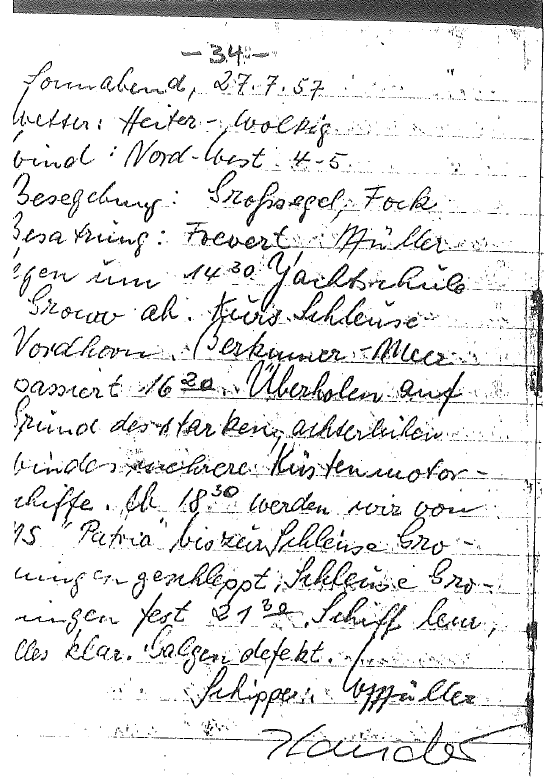 - 34 -
Sonnabend, 27.7.57
wetter: Heiter - wolkig
wind: Nord-West 4-5
Besegelung: Großsegel, Fock
Besatzung: Foevert Müller
gen um 14 30 Yachtschule
Grouw ab. Kurs Schleuse
Nordhorn. Berkumer-Meer
passiert 16 20. Überholen auf
Grund des starken, achterlichen
windes mehrere Küstenmotor-
chiffe. Ab 18 30 werden wir von
MS "Patria" bis zur Schleuse Gro-
ningen geschleppt, Schleuse Gro-
ningen fest 21 30. Schiff lenz,
lles klar. Galgen defekt.
Schipper: Müller